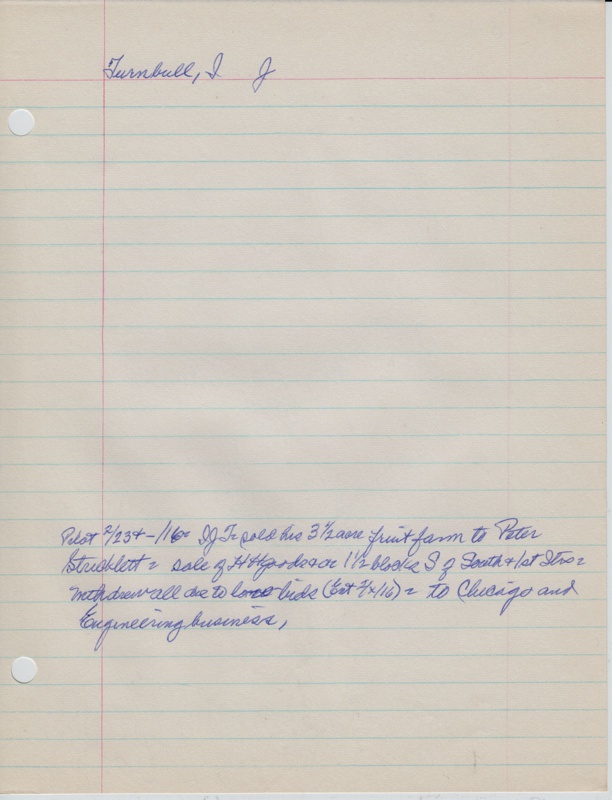 Turnbull, I J
Pilot 2/23+ -/16= I J T= sold his 3 1/2 acre fruit farm to Peter
Streiblett= sale of HH goods at or 1 1/2 blocks S of South & 1st Sts=
withdrew all due to low bids (Ent 3/x/16) = to Chicago and
Engineering business,